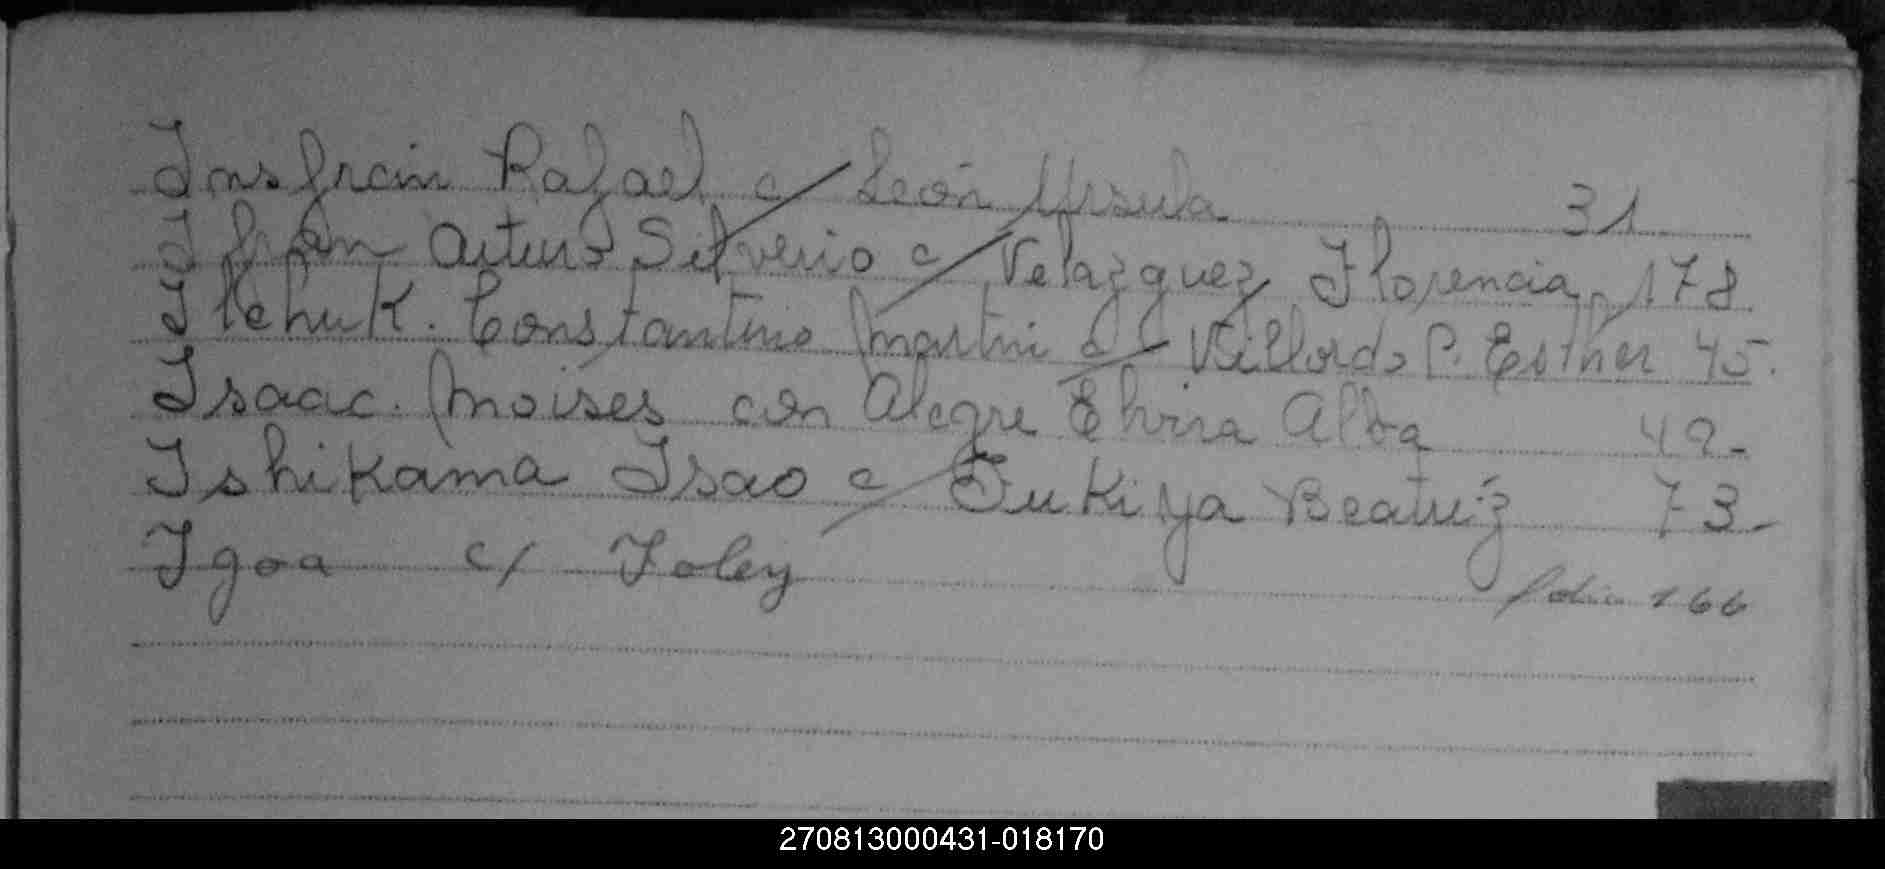 Insfrain Rafael c/ León Ursula 31
Ifran Arturo Silverio c/ Velazquez Florencia 178
Ilchuk. Constantino Martin c/ Villordo P. Esther 45.
Isaac. Moises con Alegre Elvira Alba 49-
Ishikama Isao c/ Tukiya Beatriz 73-
Igoa c/ Foley folio 166
270813000431-018170